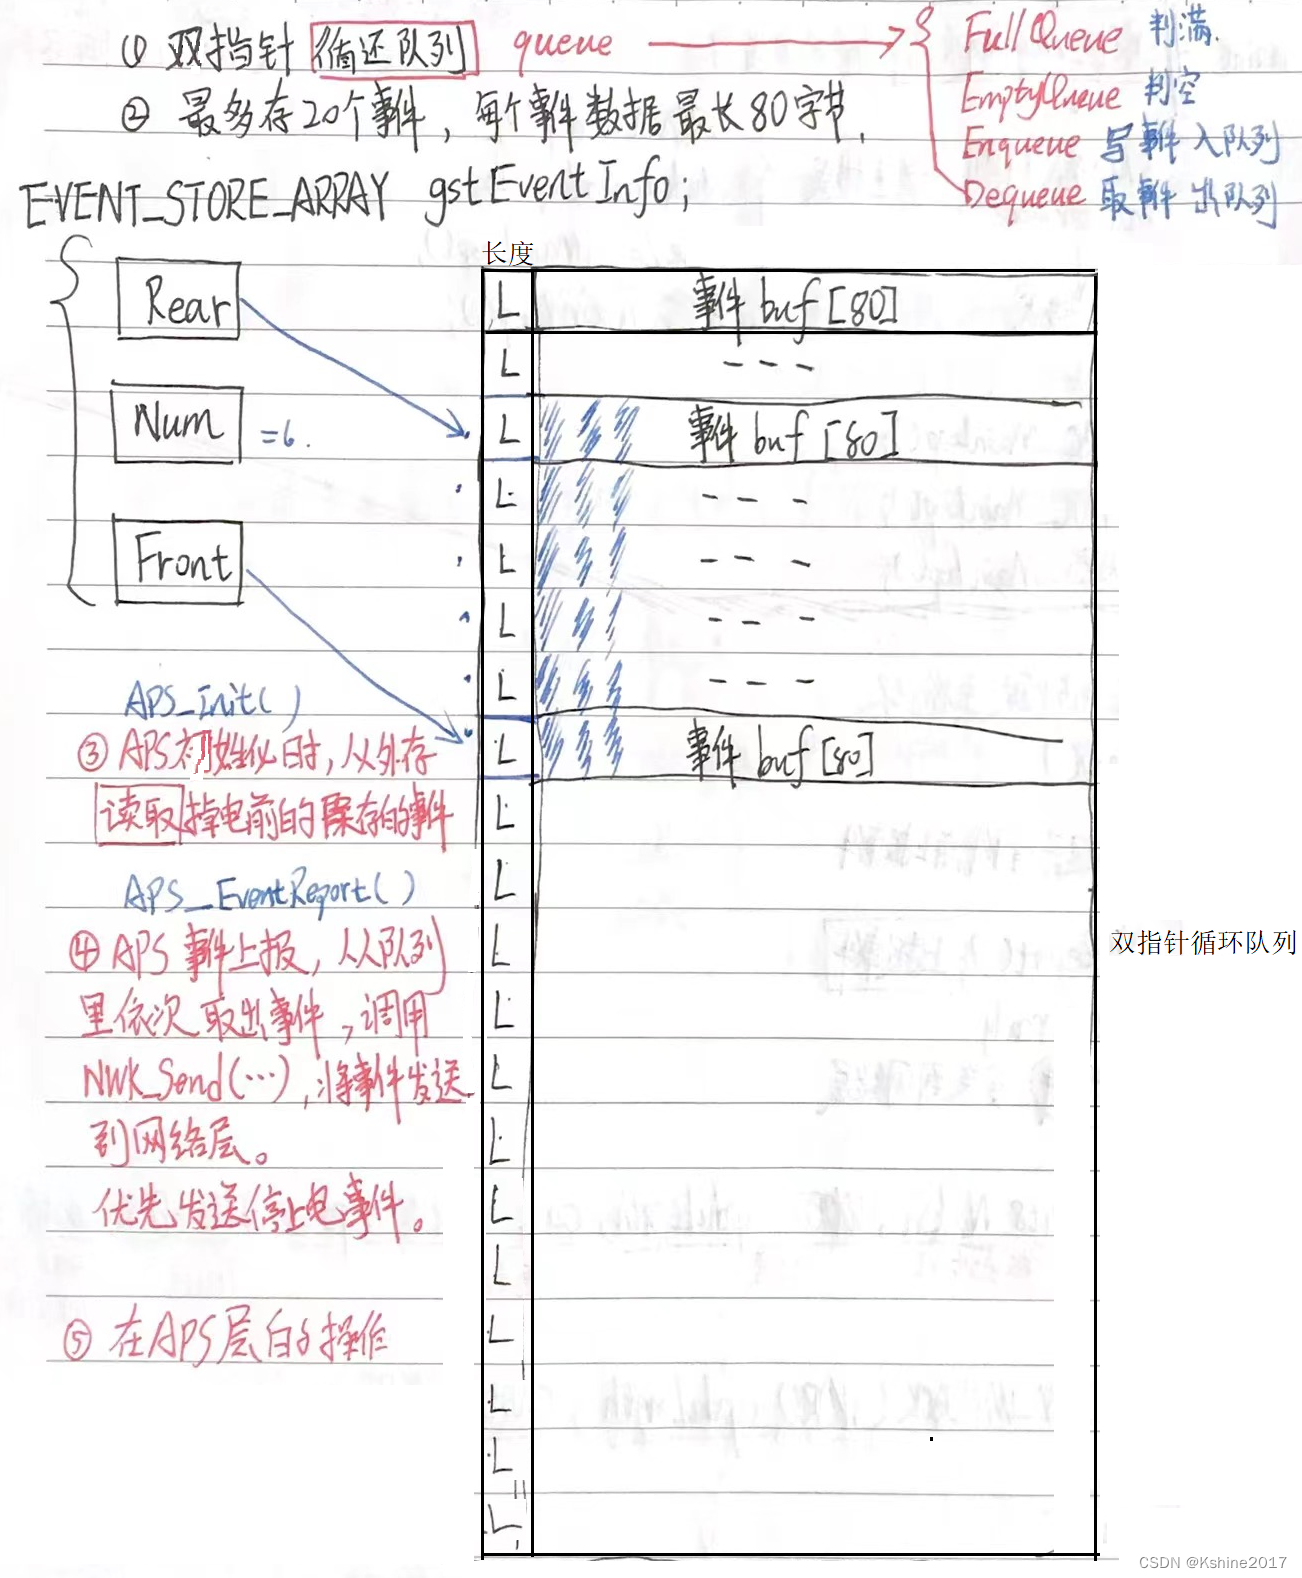 ① 双指针 循还队列 queue
FullQueue 判满.
EmptyQueue 判空
Enqueue 写事件入队列
Dequeue 取事件出队列
② 最多存20个事件，每个事件数据最长80字节.
EVENT_STORE_ARRAY gstEventInfo;
长度
Rear
Num =6.
Front
L 事件 buf [80]
L - - -
L 事件 buf [80]
L - - -
L - - -
L - - -
L - - -
L 事件 buf [80]
L
L
L
L
L
L
L
L
L
L
L
L
APS_Init()
③ APS初始化时，从外存
读取掉电前的保存的事件
APS_EventReport()
④ APS 事件上报，从队列
里依次取出事件，调用
NWK_Send(…)，将事件发送
到网络层。
优先发送停上电事件。
⑤ 在APS层的操作
双指针循环队列
CSDN @Kshine2017